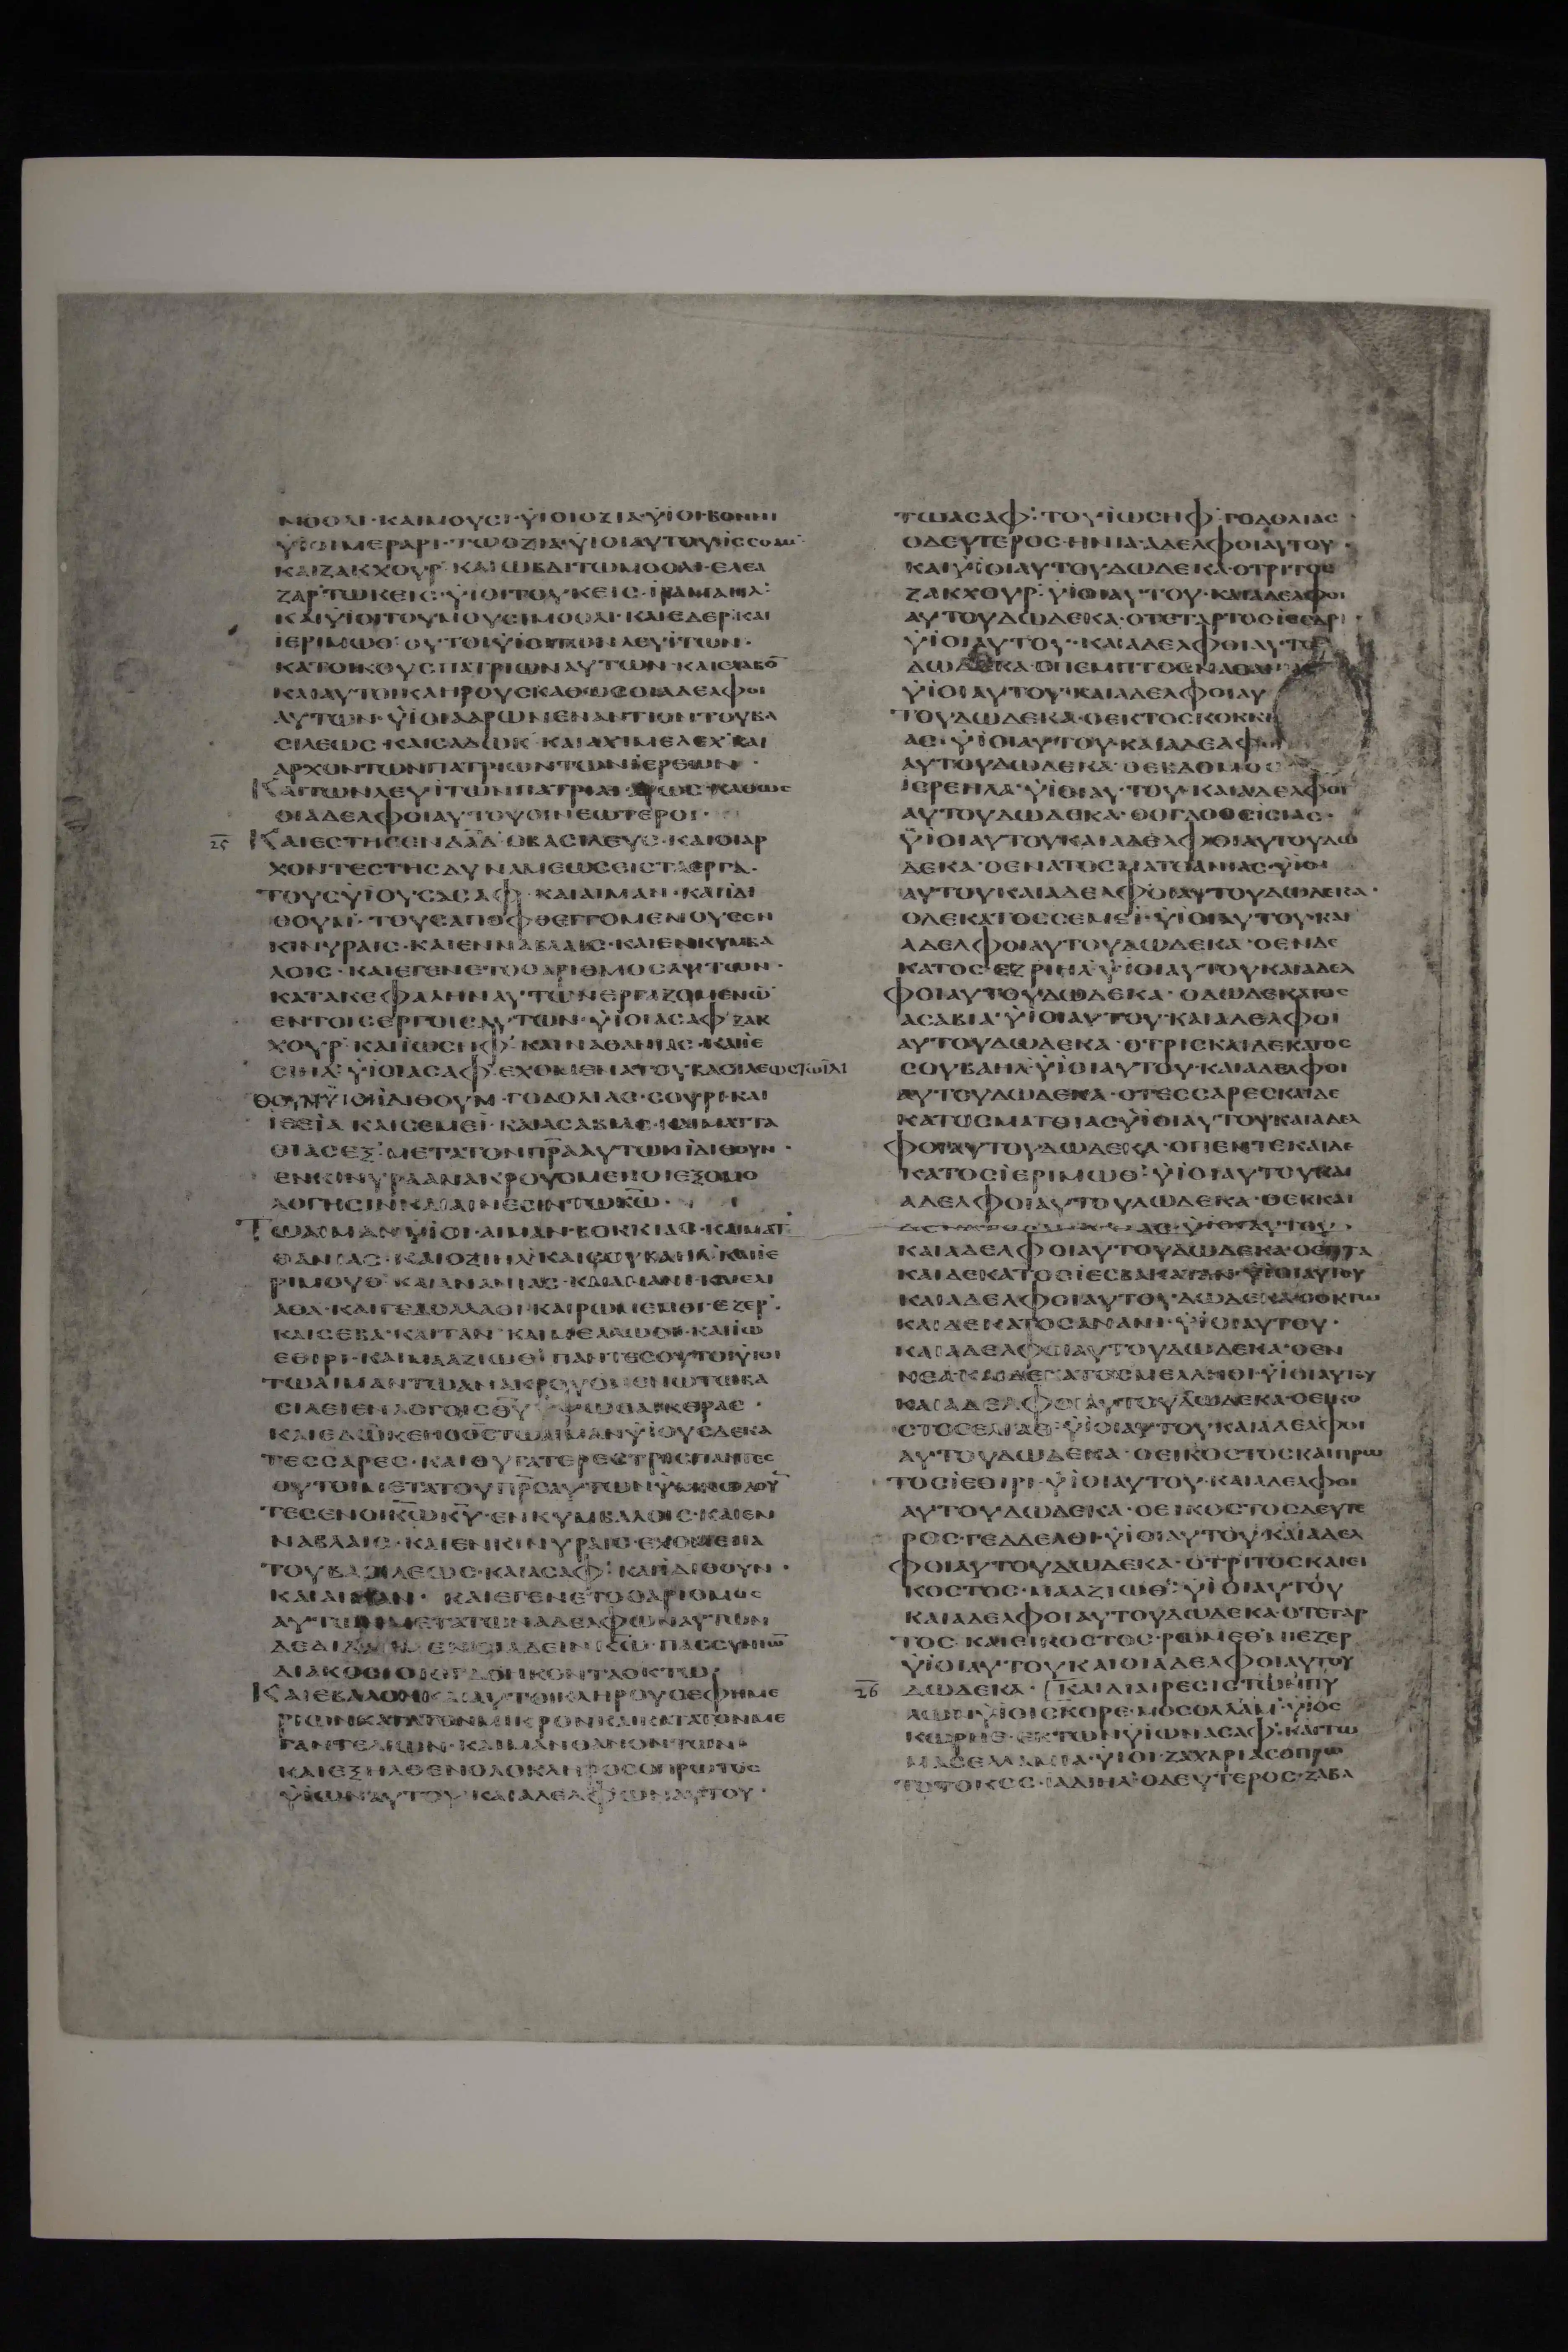 ΜΟΟΛΙ·ΚΑΙΜΟΥΣΙ·ΥΙΟΙΟΖΙΑ·ΥΙΟΙ·ΒΟΝΝΙ
ΥΙΟΙΜΕΡΑΡΙ·ΤΩΟΖΙΑ·ΥΙΟΙΑΥΤΟΥ
ΚΑΙΖΑΚΧΟΥΡ ΚΑΙΩΒΔΙΤΩΜΟΟΛΙ·ΕΛΕΑ
ΖΑΡ ΤΩΚΕΙΣ·ΥΙΟΙΤΟΥΚΕΙΣ·
ΚΑΙΥΙΟΙΤΟΥΜΟΥΣΙΜΟΟΛΙ·ΚΑΙΕΔΕΡ ΚΑΙ
ΙΕΡΙΜΩΘ ΟΥΤΟΙΥΙΟΙΤΩΝΛΕΥΙΤΩΝ·
ΚΑΤΟΙΚΟΥΣΠΑΤΡΙΩΝΑΥΤΩΝ·ΚΑΙΕΛΑΒΟ̅
ΚΑΙΑΥΤΟΙΚΛΗΡΟΥΣΚΑΘΩΣΟΙΑΔΕΛΦΟΙ
ΑΥΤΩΝ·ΥΙΟΙΑΑΡΩΝΕΝΑΝΤΙΟΝΤΟΥΒΑ
ΣΙΛΕΩΣ·ΚΑΙΣΑΔΩΚ ΚΑΙΑΧΙΜΕΛΕΧ ΚΑΙ
ΑΡΧΟΝΤΩΝΠΑΤΡΙΩΝΤΩΝΙΕΡΕΩΝ·
ΚΑΙΤΩΝΛΕΥΙΤΩΝΠΑΤΡΙΑΙ ΚΑΘΩΣ
ΟΙΑΔΕΛΦΟΙΑΥΤΟΥΟΙΝΕΩΤΕΡΟΙ·
25 ΚΑΙΕΣΤΗΣΕΝΔΑ̅Δ ΟΒΑΣΙΛΕΥΣ·ΚΑΙΟΙΑΡ
ΧΟΝΤΕΣΤΗΣΔΥΝΑΜΕΩΣΕΙΣΤΑΕΡΓΑ·
ΤΟΥΣΥΙΟΥΣΑΣΑΦ·ΚΑΙΑΙΜΑΝ·ΚΑΙΙΔΙ
ΘΟΥΜ·ΤΟΥΣΑΠΟΦΘΕΓΓΟΜΕΝΟΥΣΕΝ
ΚΙΝΥΡΑΙΣ·ΚΑΙΕΝΝΑΒΛΑΙΣ·ΚΑΙΕΝΚΥΜΒΑ
ΛΟΙΣ·ΚΑΙΕΓΕΝΕΤΟΟΑΡΙΘΜΟΣΑΥΤΩΝ·
ΚΑΤΑΚΕΦΑΛΗΝΑΥΤΩΝΕΡΓΑΖΟΜΕΝΩ̅
ΕΝΤΟΙΣΕΡΓΟΙΣΑΥΤΩΝ·ΥΙΟΙΑΣΑΦ ΖΑΚ
ΧΟΥΡ ΚΑΙΙΩΣΗΦ ΚΑΙΝΑΘΑΝΙΑΣ·ΚΑΙΙΕ
ΣΙΗΛ ΥΙΟΙΑΣΑΦ ΕΧΟΜΕΝΑΤΟΥΒΑΣΙΛΕΩΣ
ΘΟΥΜΥΙΟΙΙΔΙΘΟΥΜ·ΓΟΔΟΛΙΑΣ·ΣΟΥΡΙ·ΚΑΙ
ΙΣΕΙΑ ΚΑΙΣΕΜΕΙ·ΚΑΙΑΣΑΒΙΑΣ·ΚΑΙΜΑΤΤΑ
ΘΙΑΣΕΞ ΜΕΤΑΤΟΝΠΡ̅ΑΑΥΤΩΝΙΔΙΘΟΥΝ·
ΕΝΚΙΝΥΡΑΑΝΑΚΡΟΥΟΜΕΝΟΙΕΞΟΜΟ
ΛΟΓΗΣΙΝΚΑΙΑΙΝΕΣΙΝΤΩΚ̅Ω·
ΤΩΑΙΜΑΝΥΙΟΙ·ΑΙΜΑΝ·ΒΟΚΚΙΑΣ·ΚΑΙΜΑΤ
ΘΑΝΙΑΣ·ΚΑΙΟΖΙΗΛ ΚΑΙΣΟΥΒΑΗΛ ΚΑΙΙΕ
ΡΙΜΟΥΘ ΚΑΙΑΝΑΝΙΑΣ·ΚΑΙΑΝΑΝΙ·ΚΑΙΕΛΙ
ΑΘΑ·ΚΑΙΓΕΔΟΛΛΑΘΙ·ΚΑΙΡΩΜΕΜΘΙ·ΕΖΕΡ·
ΚΑΙΣΕΒΑ·ΚΑΙΤΑΝ ΚΑΙΜΕΛΛΩΘΙ·ΚΑΙΙΩ
ΕΘΙΡΙ·ΚΑΙΜΑΑΖΙΩΘ ΠΑΝΤΕΣΟΥΤΟΙΥΙΟΙ
ΤΩΑΙΜΑΝΤΩΑΝΑΚΡΟΥΟΜΕΝΩΤΩΒΑ
ΣΙΛΕΙΕΝΛΟΓΟΙΣΘ̅Υ ΥΨΩΣΑΙΚΕΡΑΣ·
ΚΑΙΕΔΩΚΕΝΟΘ̅ΣΤΩΑΙΜΑΝΥΙΟΥΣΔΕΚΑ
ΤΕΣΣΑΡΕΣ·ΚΑΙΘΥΓΑΤΕΡΕΣΤΡΕΙΣΠΑΝΤΕΣ
ΟΥΤΟΙΜΕΤΑΤΟΥΠΡ̅ΣΑΥΤΩΝ
ΤΕΣΕΝΟΙΚΩΚ̅Υ·ΕΝΚΥΜΒΑΛΟΙΣ·ΚΑΙΕΝ
ΝΑΒΛΑΙΣ·ΚΑΙΕΝΚΙΝΥΡΑΙΣ·ΕΧΟΜΕΝΑ
ΤΟΥΒΑΣΙΛΕΩΣ·ΚΑΙΑΣΑΦ ΚΑΙΙΔΙΘΟΥΝ·
ΚΑΙΑΙΜΑΝ· ΚΑΙΕΓΕΝΕΤΟΟΑΡΙΘΜΟΣ
ΑΥΤΩΝΜΕΤΑΤΩΝΑΔΕΛΦΩΝΑΥΤΩΝ
ΔΕΔΙΔΑΓΜΕΝΟΙΑΔΕΙΝΚ̅Ω·ΠΑΣΣΥΝΙΩ̅
ΔΙΑΚΟΣΙΟΙΟΓΔΟΗΚΟΝΤΑΟΚΤΩ
ΚΑΙΕΒΑΛΟΝΚΑΙΑΥΤΟΙΚΛΗΡΟΥΣΕΦΗΜΕ
ΡΙΩΝΚΑΤΑΤΟΝΜΙΚΡΟΝΚΑΙΚΑΤΑΤΟΝΜΕ
ΓΑΝΤΕΛΙΩΝ·ΚΑΙΜΑΝΘΑΝΟΝΤΩΝ·
ΚΑΙΕΞΗΛΘΕΝΟΛΟΚΛΗΡΟΣΟΠΡΩΤΟΣ
ΥΙΩΝΑΥΤΟΥ ΚΑΙΑΔΕΛΦΩΝΑΥΤΟΥ·
ΤΩΑΣΑΦ ΤΟΥΙΩΣΗΦ ΓΟΔΟΛΙΑΣ
ΟΔΕΥΤΕΡΟΣ·ΗΝΙΑ·ΑΔΕΛΦΟΙΑΥΤΟΥ·
ΚΑΙΥΙΟΙΑΥΤΟΥΔΩΔΕΚΑ·ΟΤΡΙΤΟΣ
ΖΑΚΧΟΥΡ ΥΙΟΙΑΥΤΟΥ·ΚΑΙΑΔΕΛΦΟΙ
ΑΥΤΟΥΔΩΔΕΚΑ·ΟΤΕΤΑΡΤΟΣΙΕΣΔΡΙ
ΥΙΟΙΑΥΤΟΥ·ΚΑΙΑΔΕΛΦΟΙΑΥΤΟΥ
ΔΩΔΕΚΑ·ΟΠΕΜΠΤΟΣ
ΥΙΟΙΑΥΤΟΥ·ΚΑΙΑΔΕΛΦΟΙΑΥ
ΤΟΥΔΩΔΕΚΑ·ΟΕΚΤΟΣΚΟΚΚΙ
ΑΣ·ΥΙΟΙΑΥΤΟΥ·ΚΑΙΑΔΕΛΦΟΙ
ΑΥΤΟΥΔΩΔΕΚΑ·ΟΕΒΔΟΜΟΣ
ΙΣΡΕΗΛΑ·ΥΙΟΙΑΥΤΟΥ·ΚΑΙΑΔΕΛΦΟΙ
ΑΥΤΟΥΔΩΔΕΚΑ·ΟΟΓΔΟΟΣΙΣΙΑΣ·
ΥΙΟΙΑΥΤΟΥΚΑΙΑΔΕΛΦΟΙΑΥΤΟΥΔΩ
ΔΕΚΑ·ΟΕΝΑΤΟΣΜΑΤΘΑΝΙΑΣ·ΥΙΟΙ
ΑΥΤΟΥΚΑΙΑΔΕΛΦΟΙΑΥΤΟΥΔΩΔΕΚΑ·
ΟΔΕΚΑΤΟΣΣΕΜΕΙ·ΥΙΟΙΑΥΤΟΥ·ΚΑΙ
ΑΔΕΛΦΟΙΑΥΤΟΥΔΩΔΕΚΑ·ΟΕΝΔΕ
ΚΑΤΟΣ ΕΖΡΙΗΛ ΥΙΟΙΑΥΤΟΥΚΑΙΑΔΕΛ
ΦΟΙΑΥΤΟΥΔΩΔΕΚΑ·ΟΔΩΔΕΚΑΤΟΣ
ΑΣΑΒΙΑ·ΥΙΟΙΑΥΤΟΥ·ΚΑΙΑΔΕΛΦΟΙ
ΑΥΤΟΥΔΩΔΕΚΑ·ΟΤΡΙΣΚΑΙΔΕΚΑΤΟΣ
ΣΟΥΒΑΗΛ·ΥΙΟΙΑΥΤΟΥ·ΚΑΙΑΔΕΛΦΟΙ
ΑΥΤΟΥΔΩΔΕΚΑ·ΟΤΕΣΣΑΡΕΣΚΑΙΔΕ
ΚΑΤΟΣΜΑΤΘΙΑΣΥΙΟΙΑΥΤΟΥΚΑΙΑΔΕΛ
ΦΟΙΑΥΤΟΥΔΩΔΕΚΑ·ΟΠΕΝΤΕΚΑΙΔΕ
ΚΑΤΟΣΙΕΡΙΜΩΘ ΥΙΟΙΑΥΤΟΥΚΑΙ
ΑΔΕΛΦΟΙΑΥΤΟΥΔΩΔΕΚΑ·ΟΕΚΚΑΙ
ΥΙΟΙΑΥΤΟΥ
ΚΑΙΑΔΕΛΦΟΙΑΥΤΟΥΔΩΔΕΚΑ·ΟΕΠΤΑ
ΚΑΙΔΕΚΑΤΟΣΙΕΣΒΑΚΑΤΑΝ·ΥΙΟΙΑΥΤΟΥ
ΚΑΙΑΔΕΛΦΟΙΑΥΤΟΥ·ΔΩΔΕΚΑ·ΟΟΚΤΩ
ΚΑΙΔΕΚΑΤΟΣΑΝΑΝΙ·ΥΙΟΙΑΥΤΟΥ·
ΚΑΙΑΔΕΛΦΟΙΑΥΤΟΥΔΩΔΕΚΑ·ΟΕΝ
ΝΕΑΚΑΙΔΕΚΑΤΟΣΜΕΛΛΗΘΙ·ΥΙΟΙΑΥΤΟΥ
ΚΑΙΑΔΕΛΦΟΙΑΥΤΟΥΔΩΔΕΚΑ·ΟΕΙΚΟ
ΣΤΟΣΕΛΙΑΘ·ΥΙΟΙΑΥΤΟΥΚΑΙΑΔΕΛΦΟΙ
ΑΥΤΟΥΔΩΔΕΚΑ·ΟΕΙΚΟΣΤΟΣΚΑΙΠΡΩ
ΤΟΣΙΕΘΙΡΙ·ΥΙΟΙΑΥΤΟΥ·ΚΑΙΑΔΕΛΦΟΙ
ΑΥΤΟΥΔΩΔΕΚΑ·ΟΕΙΚΟΣΤΟΣΔΕΥΤΕ
ΡΟΣ·ΓΕΔΔΕΛΘΙ·ΥΙΟΙΑΥΤΟΥ·ΚΑΙΑΔΕΛ
ΦΟΙΑΥΤΟΥΔΩΔΕΚΑ·ΟΤΡΙΤΟΣΚΑΙΕΙ
ΚΟΣΤΟΣ·ΜΑΑΖΙΩΘ·ΥΙΟΙΑΥΤΟΥ
ΚΑΙΑΔΕΛΦΟΙΑΥΤΟΥΔΩΔΕΚΑ·ΟΤΕΤΑΡ
ΤΟΣ ΚΑΙΕΙΚΟΣΤΟΣ·ΡΩΜΕΘΜΙΕΖΕΡ
ΥΙΟΙΑΥΤΟΥΚΑΙΟΙΑΔΕΛΦΟΙΑΥΤΟΥ
26 ΔΩΔΕΚΑ· ΚΑΙΔΙΑΙΡΕΣΙΣΤΩΝΠΥ
ΛΩΝΥΙΟΙΣΚΟΡΕ·ΜΟΣΟΛΛΑΜ·ΥΙΟΣ
ΚΩΡΗΕ·ΕΚΤΩΝΥΙΩΝΑΣΑΦ·ΚΑΙΤΩ
ΜΑΣΕΛΛΑΜΙΑ·ΥΙΟΙ·ΖΑΧΑΡΙΑΣΟΠΡΩ
ΤΟΤΟΚΟΣ·ΙΑΔΙΗΛ·ΟΔΕΥΤΕΡΟΣ·ΖΑΒΑ